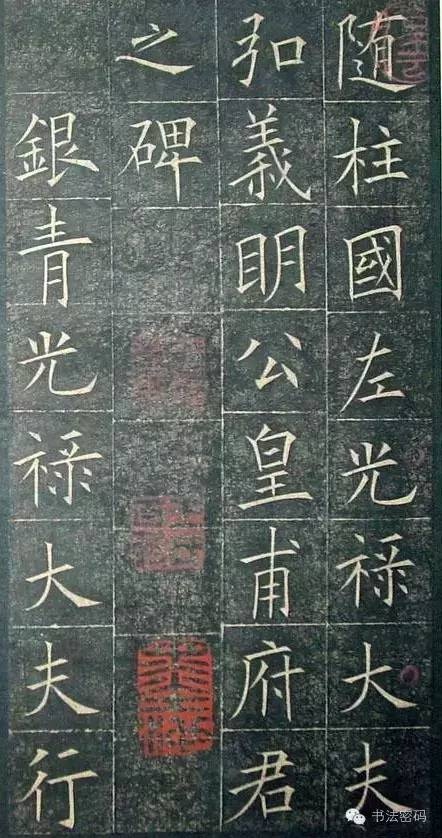 随柱國左光祿大夫
弘義明公皇甫府君
之碑
銀青光祿大夫行
书法密码